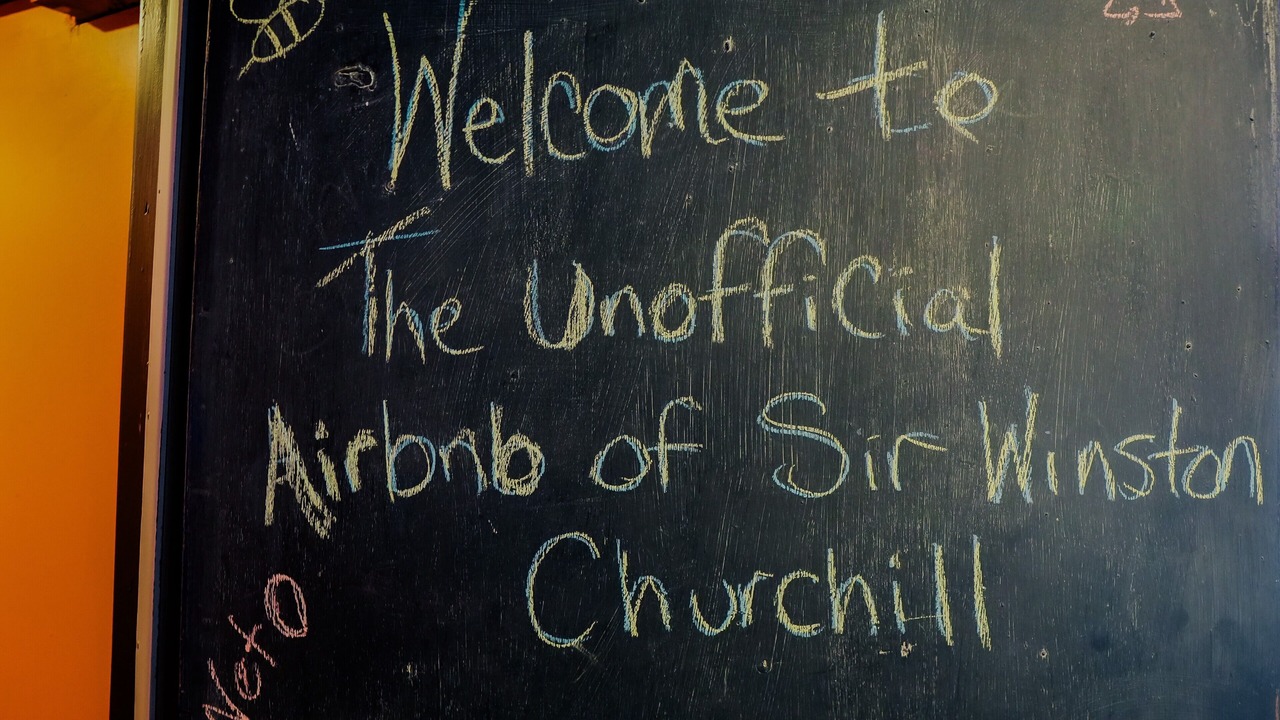 Welcome to
The Unofficial
Airbnb of Sir Winston
Churchill